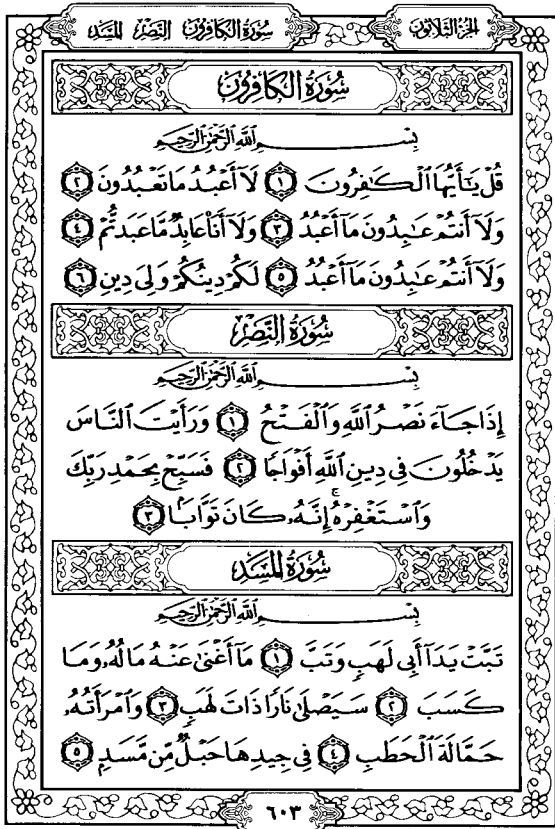 سُورَةُ الكَافِرُونَ النَّصْرِ المَسَدِ
الجُزْءُ الثَّلَاثُونَ
سُورَةُ الكَافِرُونَ
بِسْمِ ٱللَّهِ ٱلرَّحْمَٰنِ ٱلرَّحِيمِ
قُلْ يَٰٓأَيُّهَا ٱلْكَٰفِرُونَ ١ لَآ أَعْبُدُ مَا تَعْبُدُونَ ٢
وَلَآ أَنتُمْ عَٰبِدُونَ مَآ أَعْبُدُ ٣ وَلَآ أَنَا۠ عَابِدٌ مَّا عَبَدتُّمْ ٤
وَلَآ أَنتُمْ عَٰبِدُونَ مَآ أَعْبُدُ ٥ لَكُمْ دِينُكُمْ وَلِىَ دِينِ ٦
سُورَةُ النَّصْرِ
بِسْمِ ٱللَّهِ ٱلرَّحْمَٰنِ ٱلرَّحِيمِ
إِذَا جَآءَ نَصْرُ ٱللَّهِ وَٱلْفَتْحُ ١ وَرَأَيْتَ ٱلنَّاسَ
يَدْخُلُونَ فِى دِينِ ٱللَّهِ أَفْوَاجًا ٢ فَسَبِّحْ بِحَمْدِ رَبِّكَ
وَٱسْتَغْفِرْهُ ۚ إِنَّهُۥ كَانَ تَوَّابًۢا ٣
سُورَةُ المَسَدِ
بِسْمِ ٱللَّهِ ٱلرَّحْمَٰنِ ٱلرَّحِيمِ
تَبَّتْ يَدَآ أَبِى لَهَبٍ وَتَبَّ ١ مَآ أَغْنَىٰ عَنْهُ مَالُهُۥ وَمَا
كَسَبَ ٢ سَيَصْلَىٰ نَارًا ذَاتَ لَهَبٍ ٣ وَٱمْرَأَتُهُۥ
حَمَّالَةَ ٱلْحَطَبِ ٤ فِى جِيدِهَا حَبْلٌ مِّن مَّسَدٍۭ ٥
٦٠٣